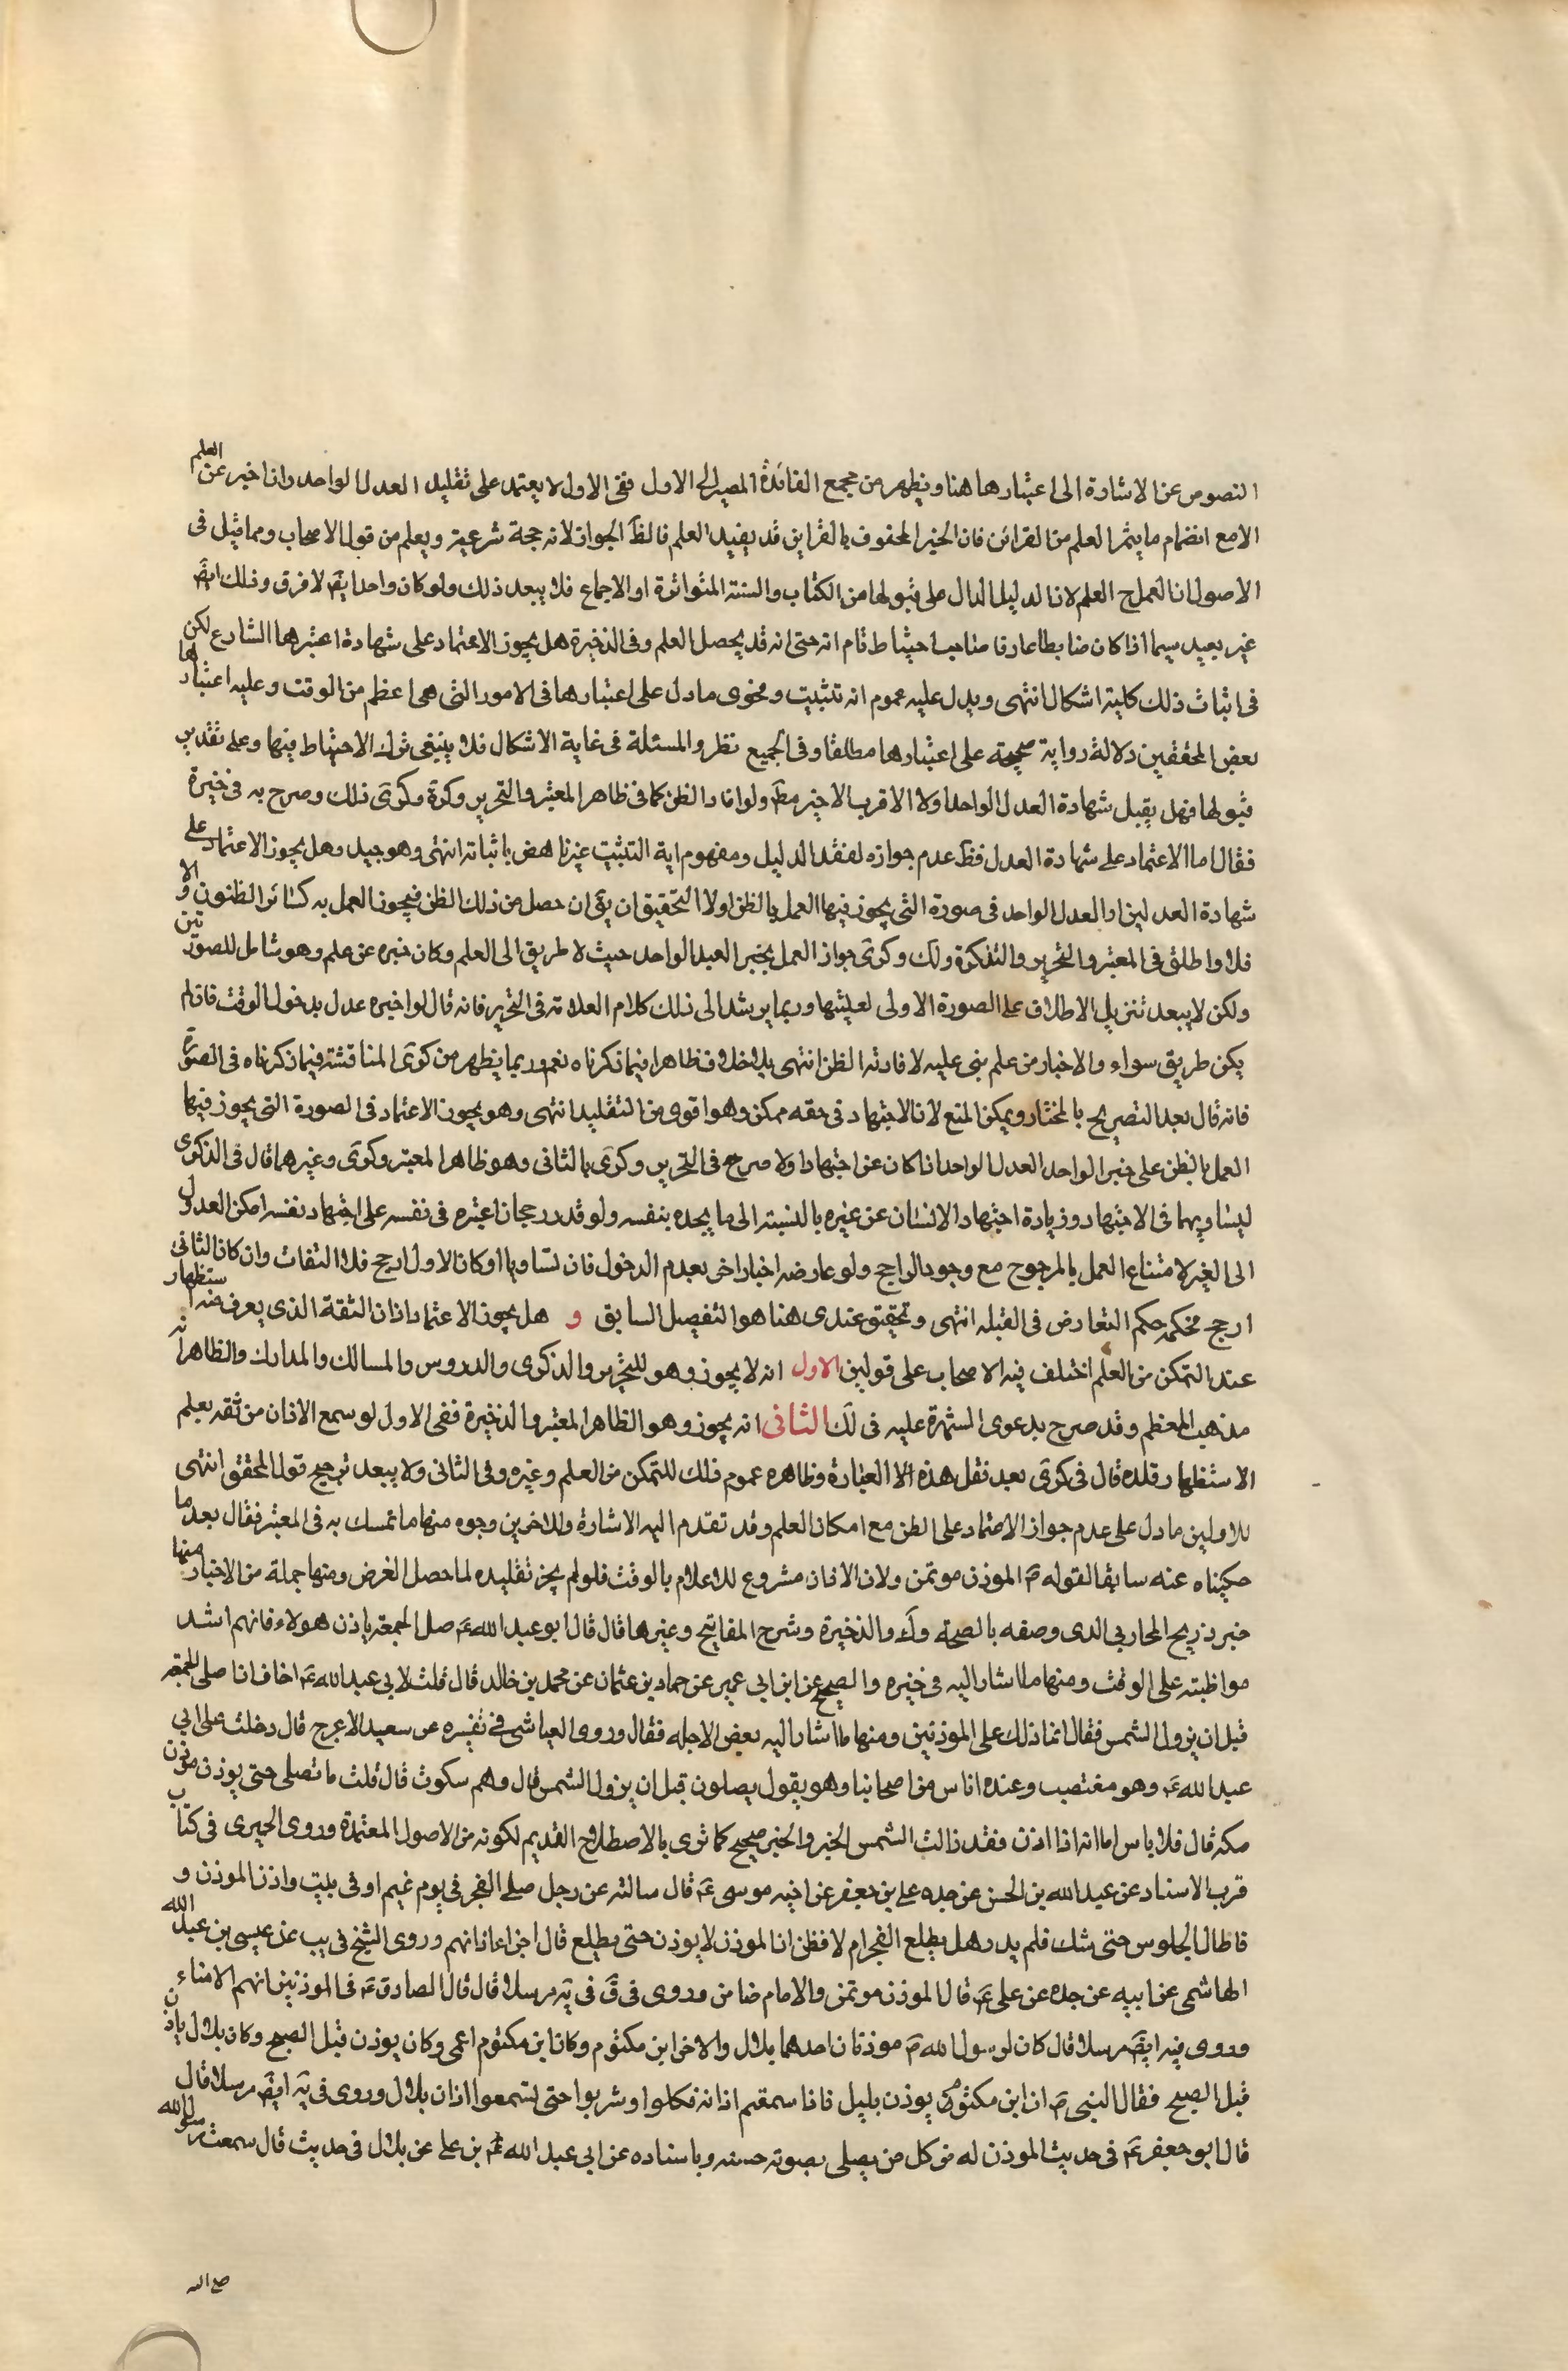 النصوص عن الاشارة الى اعتبارها هنا ويظهر من مجمع الفائدة المصير الى الاول ففى الاول لا يعتمد على تقليد العدل الواحد واذا خبر عن العلم
الا مع انضمام ما يثمر العلم من القرائن فان الخبر المحفوف بالقراين قد يفيد العلم فالظ الجواز لانه حجة شرعية ويعلم من قول الاصحاب ومما قيل فى
الاصول ان العمل ح العلم لان الدليل الدال على قبولها من الكتاب والسنة المتواترة او الاجماع فلا يبعد ذلك ولو كان واحدا يقم لا فرق وذلك ايضم
غير بعيد سيما اذا كان ضابطا عارفا صاحب احتياط تام انه حتى انه قد يحصل العلم وفى الذخيرة هل يجوز الاعتماد على شهادة اعتبرها الشارع لكن
فى اثبات ذلك كلية اشكال انتهى ويدل عليه عموم انه تثبيت وفحوى ما دل على اعتبارها فى الامور التى هى اعظم من الوقت وعليه اعتبارها
بعض المحققين دلالة رواية صحيحة على اعتبارها مطلقا وفى الجميع نظر والمسئلة فى غاية الاشكال فلا ينبغى ترك الاحتياط فيها وعلى تقدير
قبولها فهل يقبل شهادة العدل الواحد اولا الاقرب الاخير مط ولو افاد الظن كما فى ظاهر المعتبر والتحرير وكرة وكرى ذلك وصرح به فى خيرة
فقال اما الاعتماد على شهادة العدل فظ عدم جوازه لفقد الدليل ومفهوم اية التثبيت غير ناهض باثباته انتهى وهو جيد وهل يجوز الاعتماد على
شهادة العدلين او العدل الواحد فى صورة التى يجوز فيها العمل بالظن اولا التحقيق ان يق ان حصل من ذلك الظن فيجوز العمل به كسائر الظنون والا
فلا واطلق فى المعتبر والتحرير والتذكرة ولك وكرى جواز العمل بخبر العبد الواحد حيث لا طريق الى العلم وكان خبره عن علم وهو شامل للصورتين
ولكن لا يبعد تنزيل الاطلاق على الصورة الاولى لعينها وربما يرشد الى ذلك كلام العلامة فى التحرير فانه قال لو اخبره عدل بدخول الوقت فان لم
يكن طريق سواء والاخبار من علم بنى عليه لافادته الظن انتهى بلا خلاف ظاهرا فيما ذكرناه نعم وربما يظهر من كرى المناقشة فيما ذكرناه فى الصورة
فانه قال بعد التصريح بالمختار ويمكن المنع لان الاجتهاد فى حقه ممكن وهو اقوى من التقليد انتهى وهو يجوز الاعتماد فى الصورة التى يجوز فيها
العمل بالظن على خبر الواحد العدل الواحد اذا كان عن اجتهاد اولا صرح فى التحرير وكرى بالثانى وهو ظاهر المعتبر وكرى وغيرهما قال فى الذكرى
ليساويهما فى الاجتهاد وزيادة اجتهاد الانسان عن غيره بالنسبة الى ما يجده بنفسه ولو قدر رجحان اعتبره فى نفسه على اجتهاد نفسه امكن العدول
الى الغير لامتناع العمل بالمرجوح مع وجود الراجح ولو عارضه اخبار اخر بعدم الدخول فان تساويا او كان الاول ارجح فلا التفات وان كان الثانى
ارجح فحكمه حكم التعارض فى القبلة انتهى وتحقيق عندى هنا هو التفصيل السابق و هل يجوز الاعتماد اذان الثقة الذى يعرف منه استظهار
عند التمكن من العلم اختلف فيه الاصحاب على قولين الاول انه لا يجوز وهو للتحرير والذكرى والدروس والمسالك والمدارك والظاهر انه
مذهب المعظم وقد صرح بدعوى الشهرة عليه فى لك الثانى انه يجوز وهو الظاهر المعتبر والذخيرة ففى الاول لو سمع الاذان من ثقه يعلم
الاستظهار قلده قال فى كرى بعد نقل هذه الا العبارة وظاهره عموم ذلك للتمكن من العلم وغيره وفى الثانى ولا يبعد ترجيح قول المحقق انتهى
للاولين ما دل على عدم جواز الاعتماد على الظن مع امكان العلم وقد تقدم اليه الاشارة وللاخرين وجوه منها ما تمسك به فى المعتبر فقال بعد ما
حكيناه عنه سابقا لقوله ص الموذن موتمن ولان الاذان مشروع للاعلام بالوقت فلو لم يجز تقليده لما حصل الغرض ومنها جملة من الاخبار منها
خبر ذريح المحاربى الذى وصفه بالصحة وك والذخيرة وشرح المفاتيح وغيرها قال قال ابو عبد الله ع صل الجمعة باذن هولاء فانهم اشد
مواظبته على الوقت ومنها ما اشار اليه فى خيره والصحيح عن ابن ابى عمير عن حماد بن عثمان عن محمد بن خالد قال قلت لابى عبد الله ع اخاف ان اصلى الجمعة
قبل ان يزول الشمس فقال انما ذلك على الموذنين ومنها ما اشار اليه بعض الاجله فقال وروى العياشى فى تفسيره عن سعيد الاعرج قال دخلت على ابى
عبد الله ع وهو مغتصب وعنده اناس من اصحابنا وهو يقول يصلون قبل ان يزول الشمس قال وهم سكوت قال قلت ما نصلى حتى يوذن موذن
مكه قال فلا باس اما انه اذا اذن فقد زالت الشمس الخبر والخبر صحيح كما ترى بالاصطلاح القديم لكونه من الاصول المعتمدة وروى الحميرى فى كتاب
قرب الاسناد عن عبد الله بن الحسن عن جده على بن جعفر عن اخيه موسى ع قال سالته عن رجل صلى الفجر فى يوم غيم او فى بيت واذن الموذن و
فاطال الجلوس حتى شك فلم يدر هل يطلع الفجر ام لا فظن ان الموذن لا يوذن حتى يطلع قال اجزاء اذانهم وروى الشيخ فى يب عن عيسى بن عبد الله
الهاشمى عن ابيه عن جده عن على ع قال الموذن موتمن والامام ضامن وروى فى ق فى يه مرسلا قال قال الصادق ع فى الموذنين انهم الامناء
وروى فيه ايضم مرسلا قال كان لرسول الله ص موذنان احدهما بلال والاخر ابن مكتوم وكان ابن مكتوم اعمى وكان يوذن قبل الصبح وكان بلال ياذن
قبل الصبح فقال النبى ص ان ابن مكتوم يوذن بليل فاذا سمعتم اذانه فكلوا وشربوا حتى تسمعوا اذان بلال وروى فى يه ايضم مرسلا قال
قال ابو جعفر ع فى حديث الموذن له من كل من يصلى بصوته حسنه وباسناده عن ابى عبد الله ع بن على عن بلال فى حديث قال سمعت رسول الله
صلى الله